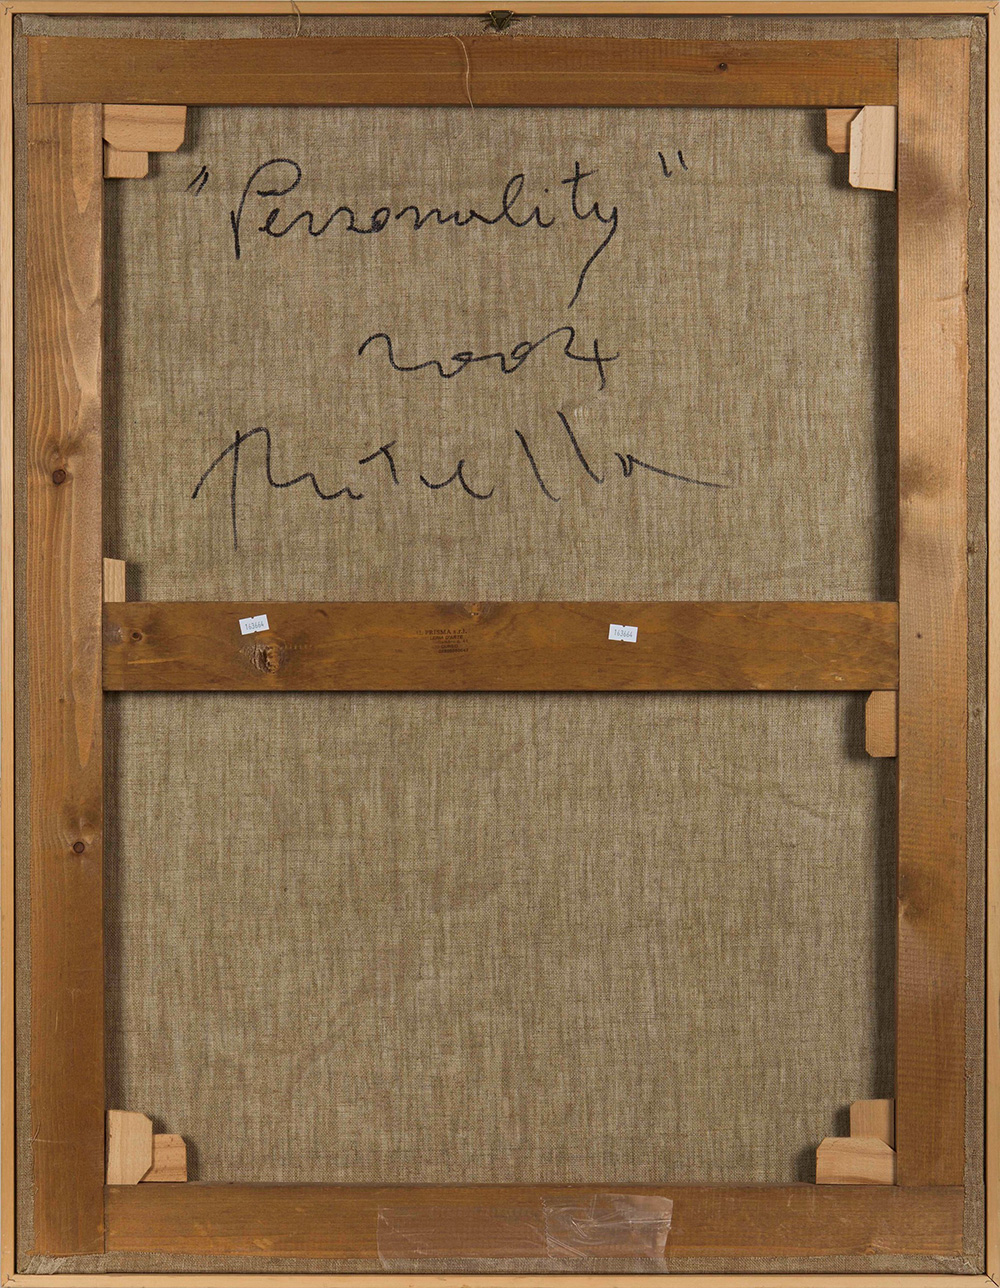 "Personality"
2004
Rotella
163664
163664
IL PRISMA s.r.l.